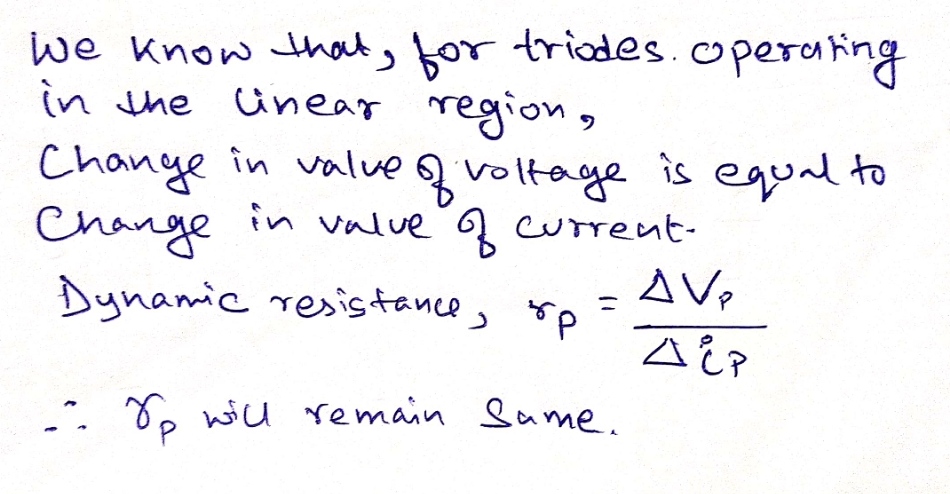 We know that, for triodes. operating
in the linear region,
Change in value of voltage is equal to
Change in value of current.
Dynamic resistance, rp = ΔVp / Δip
∴ rp will remain same.